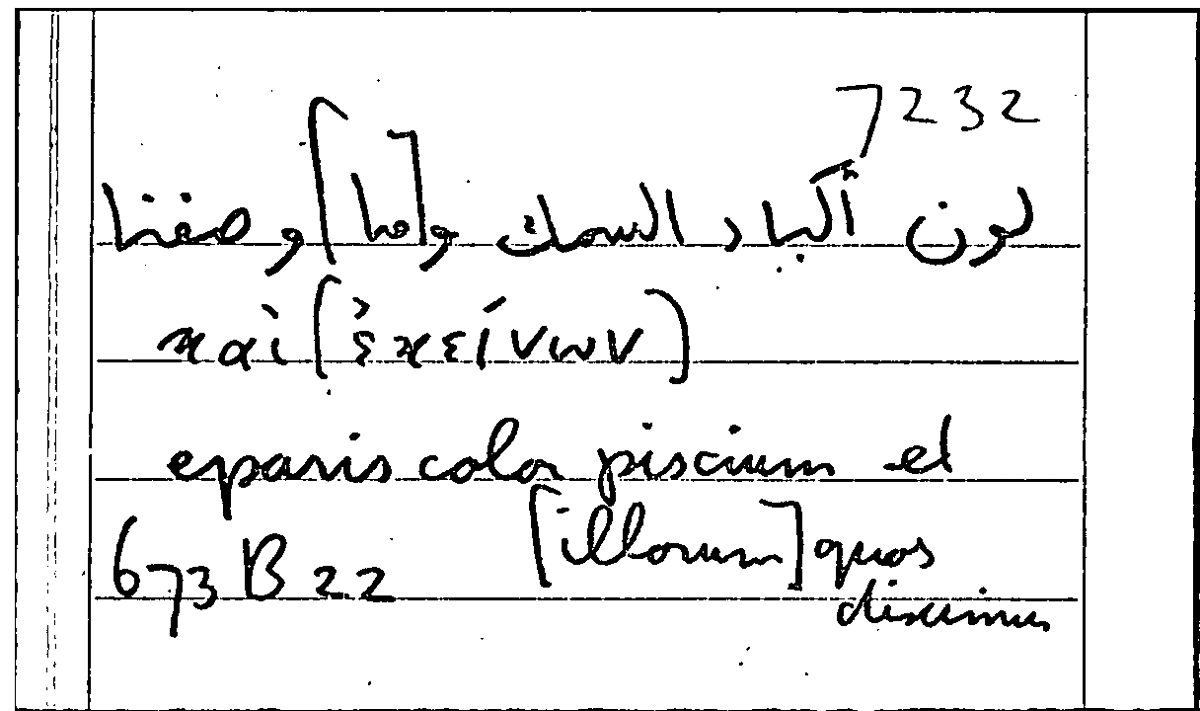 7232
لون أكباد السمك و[ما] وصفنا
καὶ (ἐκείνων)
eparis color piscium et
673 B 22 [illorum] quos
diximus